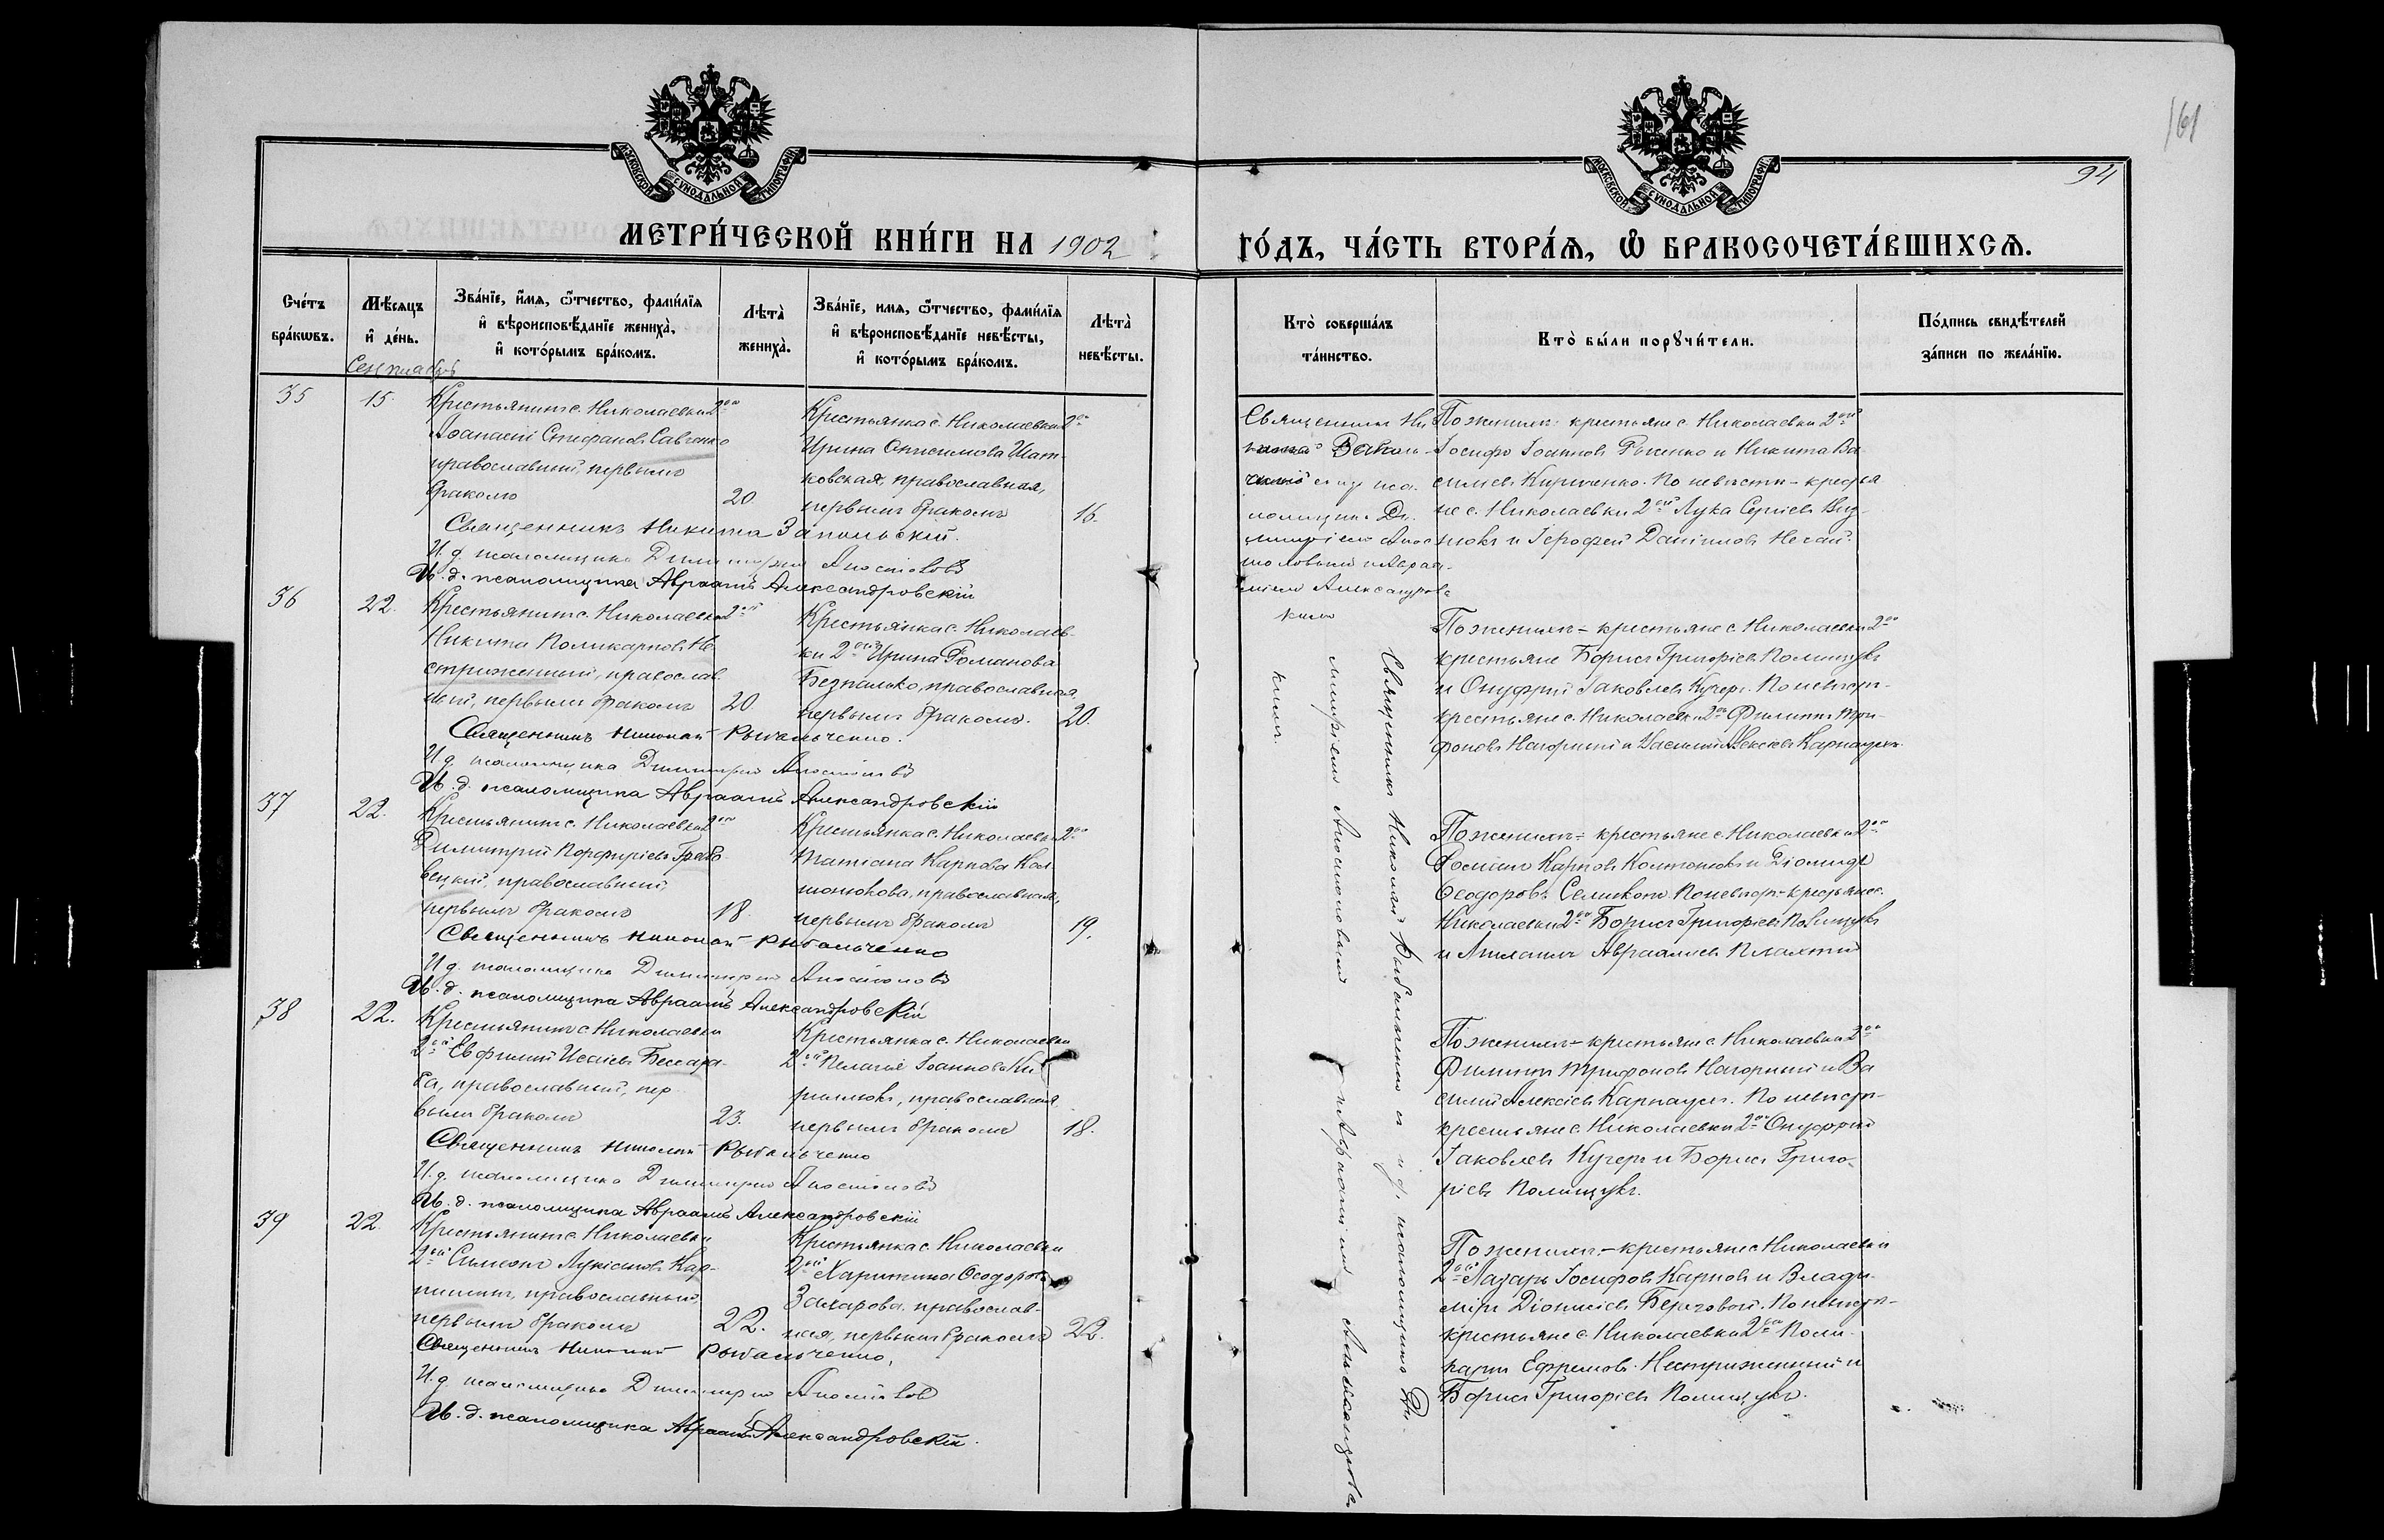 161
94
МОСКОВСКОЙ СѴНОДАЛЬНОЙ ТИПОГРАФІИ
МОСКОВСКОЙ СѴНОДАЛЬНОЙ ТИПОГРАФІИ
МЕТРИ́ЧЕСКОЙ КНИ́ГИ НА 1902
ГО́ДЪ, ЧА́СТЬ ВТОРА́Ѧ, Ѡ БРАКОСОЧЕТА́ВШИХСѦ.
Сче́тъ
бра́кѡвъ.
Мѣ́сѧцъ
и҆ де́нь.
Сентябрь
Зва́нїе, и҆́мѧ, ѻ҆́тчество, фами́лїѧ
и҆ вѣроисповѣ́данїе жениха̀,
и҆ кото́рымъ бра́комъ.
Лѣта̀
жениха̀.
Зва́нїе, имѧ, ѻ҆́тчество, фами́лїѧ
и҆ вѣроисповѣ́данїе невѣ́сты,
и҆ кото́рымъ бра́комъ.
Лѣта̀
невѣ́сты.
Кто̀ соверша́лъ
та́инство.
Кто̀ бы́ли порꙋчи́тели.
По́дпись свидѣ́телей
за́писи по жела́нїю.
35
15.
Крестьянинъ с. Николаевки 2ой
Аѳанасій Стефановъ Савченко
православный, первымъ
бракомъ
20
Крестьянка с. Николаевки 2ой
Ирина Онисимова Шат-
ковская, православная,
первымъ бракомъ
16.
Священникъ Никита Запольскій.
И. д. псаломщика Димитрій Апостоловъ
И. д. псаломщика Авраамъ Александровскій
Священникъ Ни
кита Заполь-
скій съ и д пса-
ломщика Ди-
митріемъ Апос
толовымъ и Авраа-
міемъ Александровс
кимъ
По женихѣ: крестьяне с. Николаевки 2ой
Іосифъ Іоанновъ и Никита Ва
сильевъ Кириченко. По невѣстѣ - крестья
не с. Николаевки 2ой Лука Сергіевъ
и Іероѳей Даніиловъ Нечай.
36
22.
Крестьянинъ с. Николаевки 2ой
Никита Поликарповъ Не
стриженный, православ
ный, первымъ бракомъ
20.
Крестьянка с. Николаев-
ки 2ой Ирина Романова
Безпалько, православная,
первымъ бракомъ.
20.
Священникъ Николай Рыбальченко.
И. д. псаломщика Димитрій Апостоловъ
И. д. псаломщика Авраамъ Александровскій
По женихѣ - крестьяне с. Николаевки 2ой
крестьяне Борисъ Григоріевъ Полищукъ
и Онуфрій Іаковлевъ Кучеръ. По невѣстѣ -
крестьяне с. Николаевки 2ой Филиппъ Три-
фоновъ Нагорный и Василій Алексѣевъ Карнаухъ.
37
22.
Крестьянинъ с. Николаевки 2ой
Димитрій Порфиріевъ Грабо
вецкій, православный,
первымъ бракомъ
18.
Крестьянка с. Николаевки 2ой
Татіана Карпова Кол
тонюкова, православная,
первымъ бракомъ
19.
Священникъ Николай Рыбальченко
И. д. псаломщика Димитрій Апостоловъ
И. д. псаломщика Авраамъ Александровскій
По женихѣ: крестьяне с. Николаевки 2ой
Романъ Карповъ Колтонюкъ и Діомидъ
Ѳеодоровъ По невѣстѣ - крестьяне с.
Николаевки 2ой Борисъ Григоріевъ Полищукъ
и Авраамовъ Плахтій
38
22.
Крестьянинъ с. Николаевки
2ой Евфимій Исаіевъ Бессара-
ба, православный, пер
вымъ бракомъ
23.
Крестьянка с. Николаевки
2ой Пелагія Іоаннова Ки
рилюкъ, православная
первымъ бракомъ
18.
Священникъ Николай Рыбальченко
И. д. псаломщика Димитрій Апостоловъ
И. д. псаломщика Авраамъ Александровскій
По женихѣ - крестьяне с. Николаевки 2ой
Филиппъ Трифоновъ Нагорный и Ва
силій Алексѣевъ Карнаухъ. По невѣстѣ -
крестьяне с. Николаевки 2ой Онуфрій
Іаковлевъ Кучеръ и Борисъ Григо-
ріевъ Полищукъ.
39
22.
Крестьянинъ с. Николаевки
2ой Симеонъ Лукіановъ Кар-
пишинъ, православный,
первымъ бракомъ
22.
Крестьянка с. Николаевки
2ой Харитина Ѳеодорова
Захарова, православ-
ная, первымъ бракомъ
22.
Священникъ Николай Рыбальченко,
И. д. псаломщика Димитрій Апостоловъ
И. д. псаломщика Авраамъ Александровскій.
По женихѣ - крестьяне с. Николаевки
2ой Лазарь Іосифовъ Карповъ и Влади-
міръ Діонисіевъ Береговой. По невѣстѣ -
крестьяне с. Николаевки 2ой Поли-
карпъ Ефремовъ Нестриженный и
Борисъ Григоріевъ Полищукъ.
Священникъ Николай Рыбальченко съ и. д. псаломщика Ди
митріемъ Апостоловымъ и Авраамомъ Александровс
кимъ.